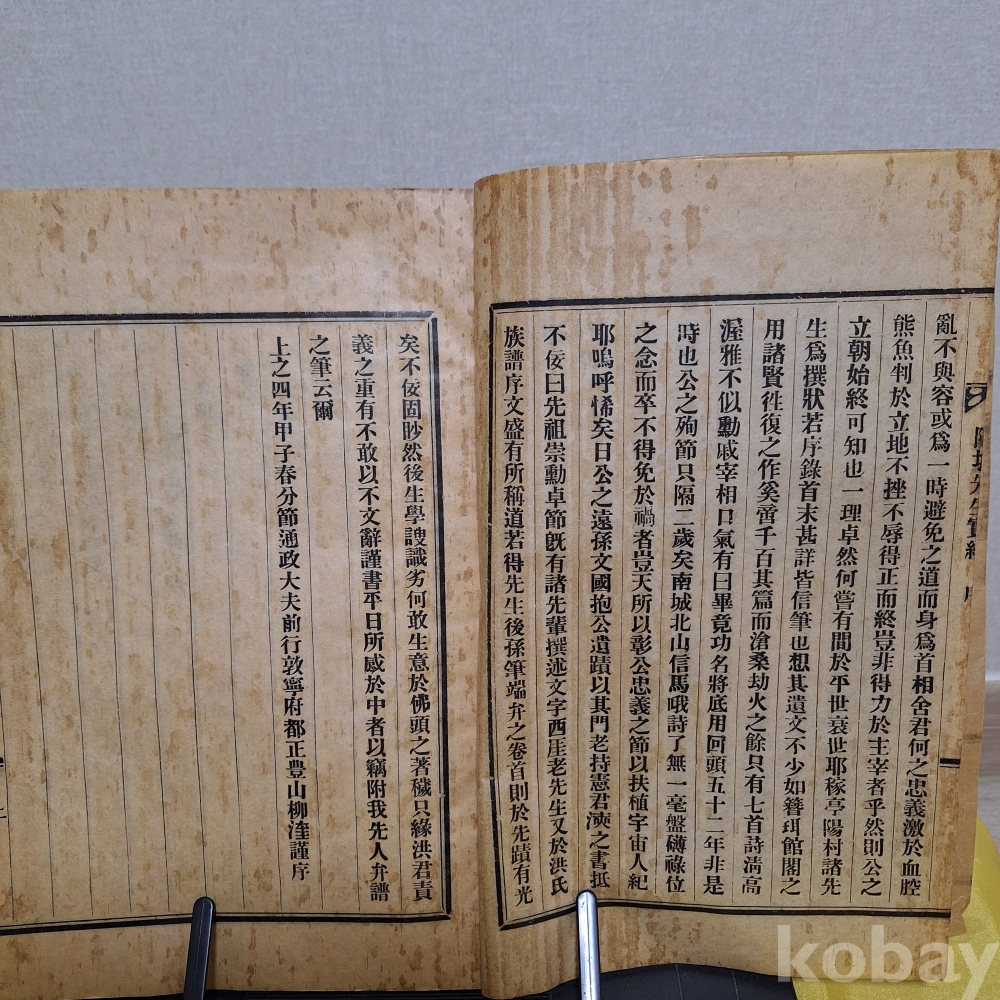 亂不與容或爲一時避免之道而身爲首相舍君何之忠義激於血腔
熊魚判於立地不挫不辱得正而終豈非得力於主宰者乎然則公之
立朝始終可知也一理卓然何嘗有間於平世衰世耶稼亭陽村諸先
生爲撰狀若序錄首末甚詳皆信筆也想其遺文不少如簪珥館閣之
用諸賢徃復之作奚啻千百其篇而滄桑劫火之餘只有七首詩淸高
渥雅不似勳戚宰相口氣有曰畢竟功名將底用回頭五十二年非是
時也公之殉節只隔二歲矣南城北山信馬哦詩了無一毫盤礴祿位
之念而卒不得免於禍者豈天所以彰公忠義之節以扶植宇宙人紀
耶嗚呼悕矣日公之遠孫文國抱公遺蹟以其門老持憲君㴒之書抵
不佞曰先祖崇勳卓節旣有諸先輩撰述文字西厓老先生又於洪氏
族譜序文盛有所稱道若得先生後孫筆端弁之卷首則於先蹟有光
先生實紀
矣不佞固眇然後生學謏識劣何敢生意於佛頭之著穢只緣洪君責
義之重有不敢以不文辭謹書平日所感於中者以竊附我先人弁譜
之筆云爾
上之四年甲子春分節通政大夫前行敦寧府都正豊山柳𣾷謹序
kobay